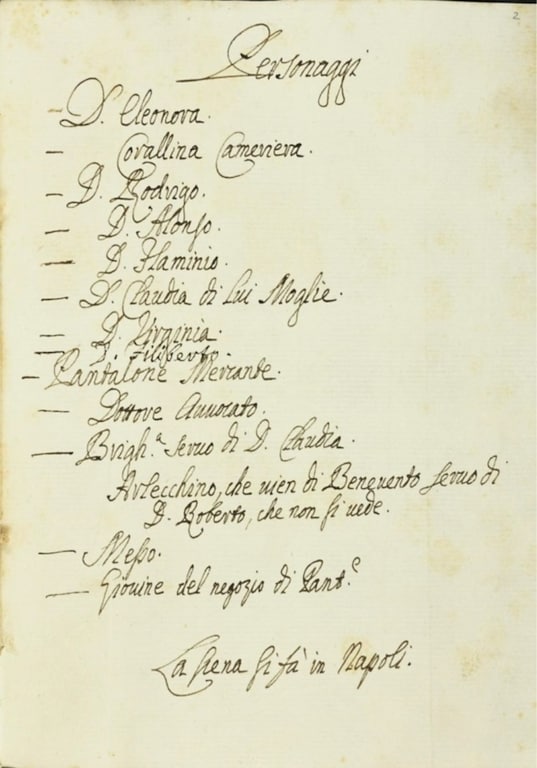 2
Personaggi
— D. Eleonora.
— Corallina Cameriera.
— D. Rodrigo.
— D. Alonso.
— D. Flaminio.
— D. Claudia di lui Moglie.
— D. Virginia.
— D. Filiberto.
— Pantalone Mercante.
— Dottore Avvocato.
— Brigh.a servo di D. Claudia.
Arlecchino, che vien di Benevento servo di
D. Roberto, che non si vede.
— Messo.
— Giovine del negozio di Pant.e
La scena si fà in Napoli.